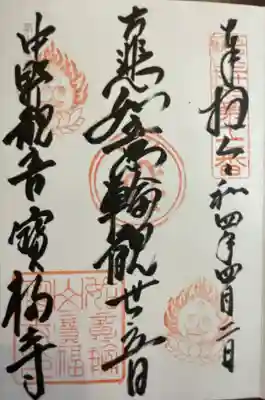 奉拝 令和四年四月二日
大悲如意輪観世音
中野観音寳福寺